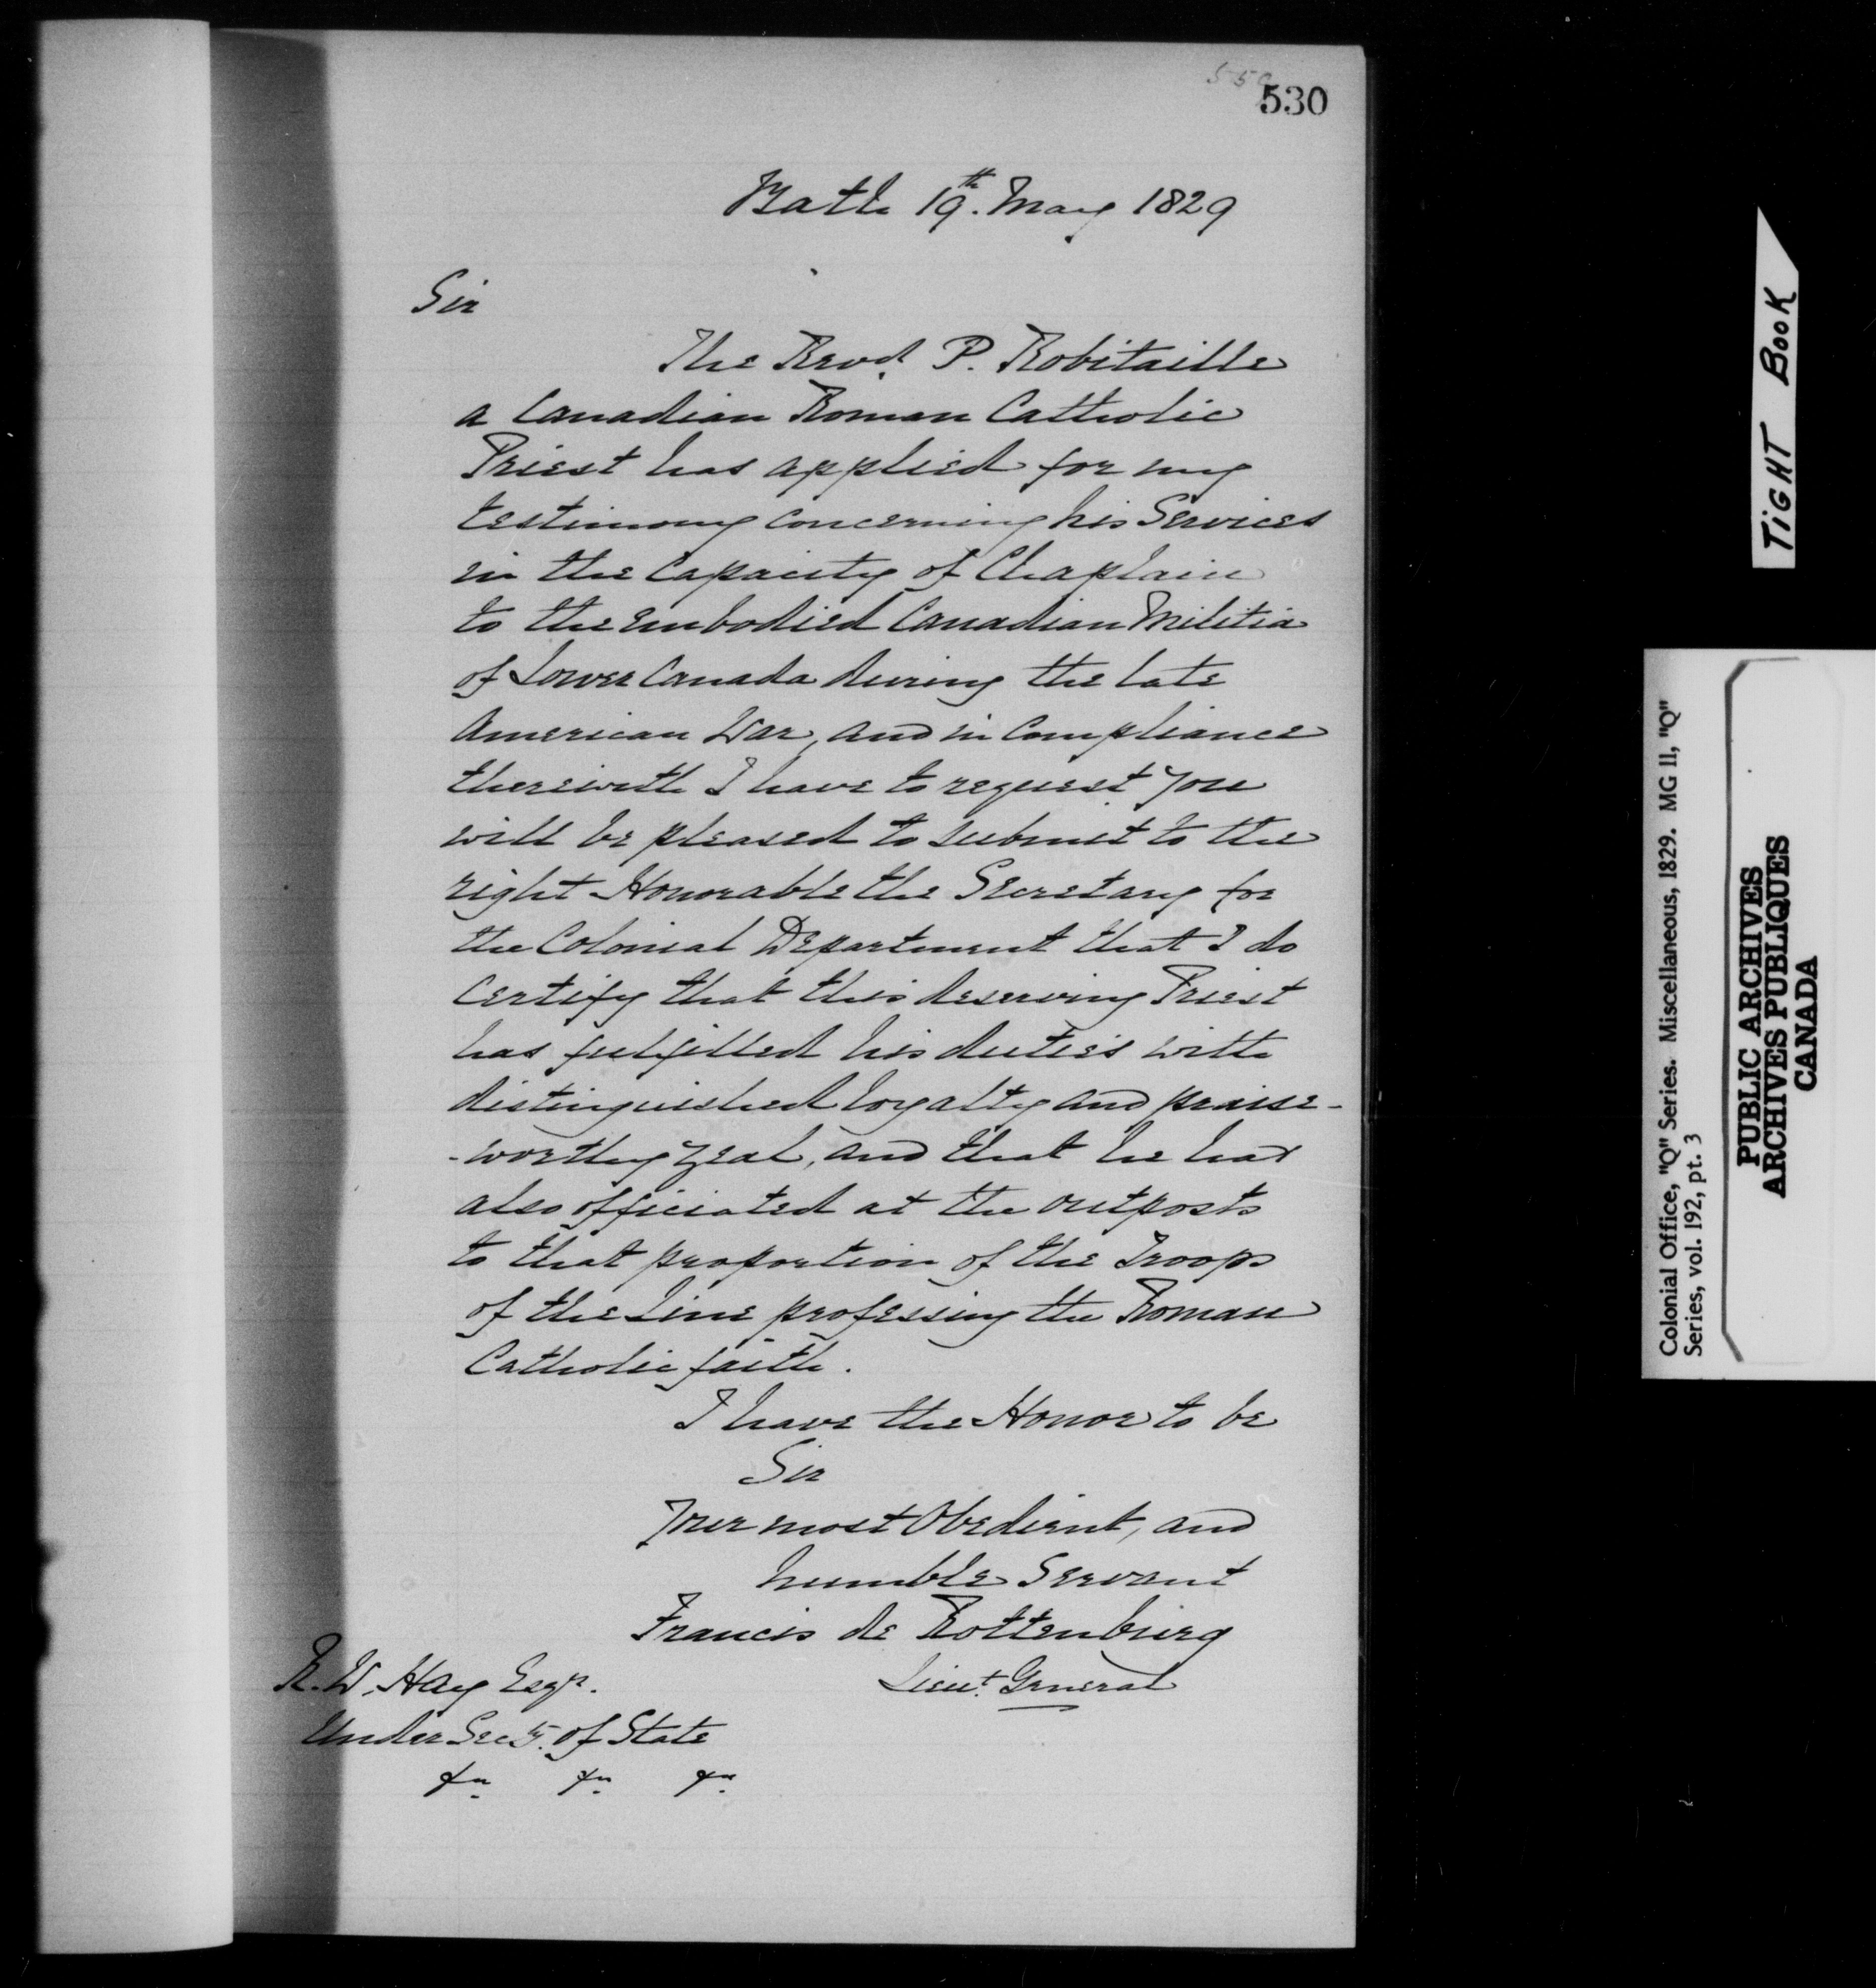 559
530
Bath 19th. May 1829
Sir
The Revd. P. Robitaille
a Canadian Roman Catholic
Priest has applied for my
testimony concerning his Services
in the Capacity of Chaplain
to the embodied Canadian Militia
of Lower Canada during the late
American War, and in compliance
therewith I have to request you
will be pleased to submit to the
right Honorable the Secretary for
the Colonial Department that I do
certify that this deserving Priest
has fulfilled his duties with
distinguished loyalty and praise-
-worthy zeal, and that he has
also officiated at the outposts
to that proportion of the Troops
of the Line professing the Roman
Catholic faith.
I have the Honor to be
Sir
Your most Obedient, and
humble Servant
Francis de Rottenburg
Lieut. General
R. W. Hay Esqr.
Under Secty. of State
&c. &c. &c.
TIGHT BOOK
Colonial Office, "Q" Series. Miscellaneous, 1829. MG 11, "Q"
Series, vol. 192, pt. 3
PUBLIC ARCHIVES
ARCHIVES PUBLIQUES
CANADA